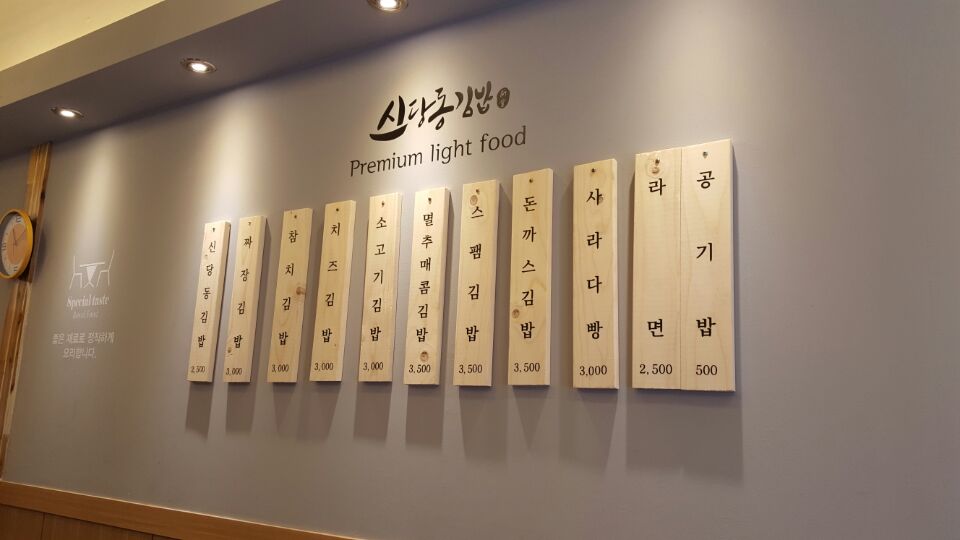 신당동김밥
Premium light food
신당동김밥
2,500
짜장김밥
3,000
참치김밥
3,000
치즈김밥
3,000
소고기김밥
3,000
멸추매콤김밥
3,500
스팸김밥
3,500
돈까스김밥
3,500
사라다빵
3,000
라면
2,500
공기밥
500
Special taste
좋은 재료로 정직하게
요리합니다.